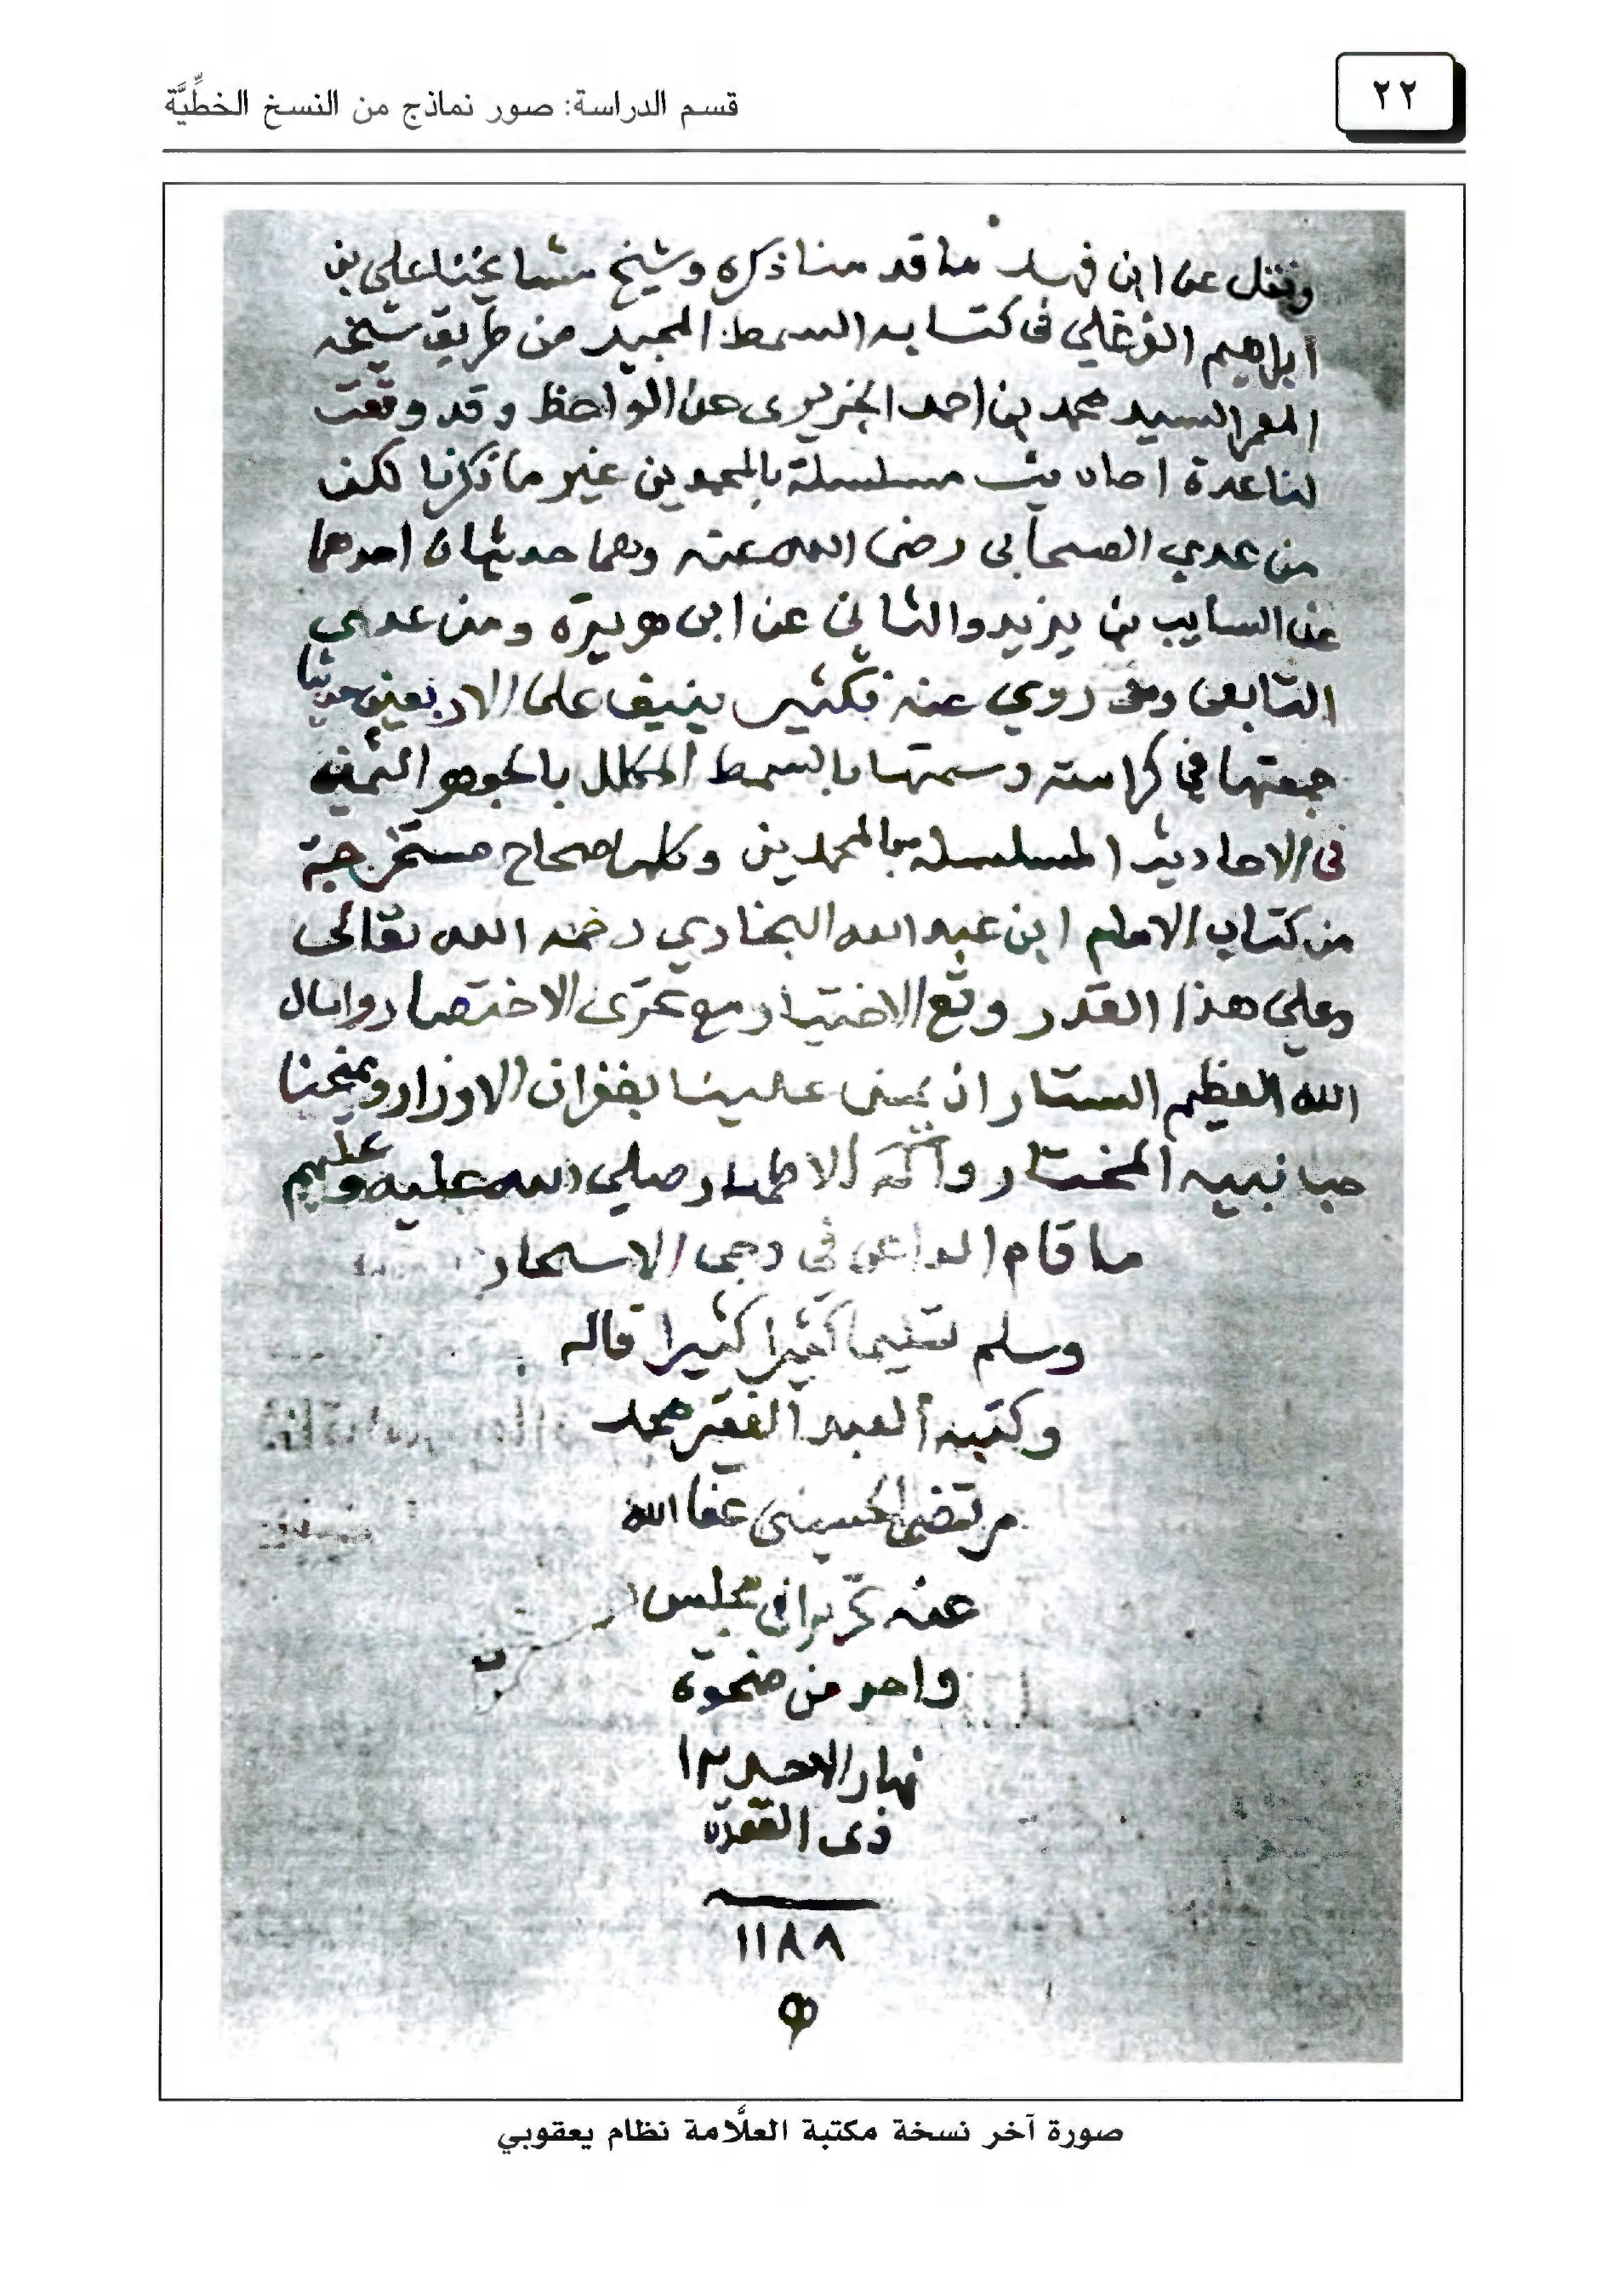 ٢٢
قسم الدراسة: صور نماذج من النسخ الخطِّيَّة
ونقل عن ابن فهد ما قدمنا ذكره وشيخ مشايخنا علي بن
ابراهيم في كتابه السمط المجيد من طريق شيخه
المعمر السيد محمد بن احمد وقد وقعت
لنا عدة احاديث مسلسلة بالمحمدين غير ما ذكرنا لكن
من عدي الصحابي رضى الله عنه وهما حديثان احدهما
عن السايب بن يزيد والثانى عن ابى هريرة ومن عدي
التابعى روي عنه بكثير ينيف على الاربعين حديثا
جمعتها في كراسته وسمتها بالسمط المكلل بالجوهر الثمين
فى الاحاديث المسلسله بالمحمدين وكلها صحاح مستخرجة
من كتاب الامام ابى عبد الله البخاري رحمه الله تعالى
وعلي هذا القدر وقع الاختيار مع تحرّى الاختصار واسال
الله العظيم الستار ان يمن علينا بغفران الاوزار ويمنحنا
حبا نبيه المختار وآله الاطهار صلي الله عليه وعليهم
ما قام الداعى فى دجى الاسحار
وسلم تسليما كثيرا كثيرا قاله
وكتبه العبد الفقير محمد
مرتضى الحسينى عفا الله
عنه تحريرا فى مجلس
واحد من ضحوة
نهار الاحد ١٢
ذى القعدة
١١٨٨
صورة آخر نسخة مكتبة العلَّامة نظام يعقوبي